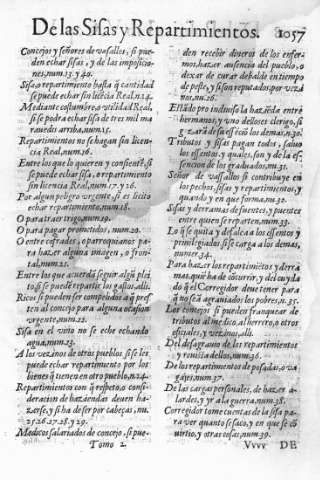 De las Sisas y Repartimientos. 1057
Concejos y señores de vasallos, si pue-
den echar sisas, y de las imposicio-
nes, num. 13. y 40.
Sisa, o repartimiento hasta q̃ cantidad
se puede echar sin licẽcia Real, n. 14.
Mediante costumbre o vtilidad Real,
si se podra echar sisa de tres mil ma
rauedis arriba, num. 15.
Repartimientos no se hagan sin licen-
cia Real, num. 16.
Entre los que lo quieren y consientẽ, si
se puede echar sisa, o repartimiento
sin licencia Real, num. 17. y 26.
Por algun peligro vrgente, si es licito
echar repartimiento, num. 18.
O para traer trigo, num. 19.
O para pagar prometidos, num. 20.
O entre cofrades, o parroquianos pa-
ra hazer alguna imagen, o fron-
tal, num. 21.
Entre los que acuerdã seguir algũ plei
to, si se puede repartir los gastos, alli.
Ricos si pueden ser compelidos a q̃ pres
ten al concejo para alguna ocasion
vrgente, num. 22.
Sisa en el vino no se eche echando
agua, num. 23.
A los vezinos de otros pueblos si se les
puede echar repartimiento por los
bienes q̃ tienen en otro pueblo, n. 24.
Repartimientos con q̃ respeto, o consi-
deracion de haziendas deuen ha-
zerse, y si ha de ser por cabeças, nu.
25. 26. 27. 28. y 29.
Medicos salariados de concejo, si pue-
den recebir dineros de los enfer-
mos, hazer ausencia del pueblo, o
dexar de curar debalde en tiempo
de peste, y si son reputados por vezi
nos, nu. 26.
Estãdo pro indiuiso la haziẽda entre
hermanos, y vno dellos es clerigo, si
gozarà de su essẽciõ los demas, n. 30.
Tributos y sisas pagan todos, saluo
los essentos, y quales son y de la es-
sencion de los graduados, nu. 31.
Señor de vassallos si contribuye en
los pechos, sisas y repartimientos, y
quando y en que forma, nu. 32.
Sisas y derramas de fuentes, y puentes
entre quienes se reparten, num. 33.
Lo q̃ se quita y desfalca a los essentos y
priuilegiados si se carga a los demas,
numer. 34.
Para hazer los repartimiẽtos y derra
mas, quiẽ ha de cõcurrir, y del cuyda
do q̃ el Corregidor deue tener para
q̃ no seã agrauiados los pobres, n. 35.
Los concejos si pueden franquear de
tributos al medico, al herrero, o otros
oficiales, y vezinos, alli.
Del desagrauio de los repartimientos
y reuista dellos, num. 36.
De los repartimientos de posadas, o va
gajes, num. 37.
De las cargas personales, de hazer a-
lardes, y yr a la guerra, num. 38.
Corregidor tome cuentas de la sisa pa-
ra ver quanto se saco, y en que se cõ
uirtio, y otras cosas, num. 39.
Tomo 2. Vvvv DE